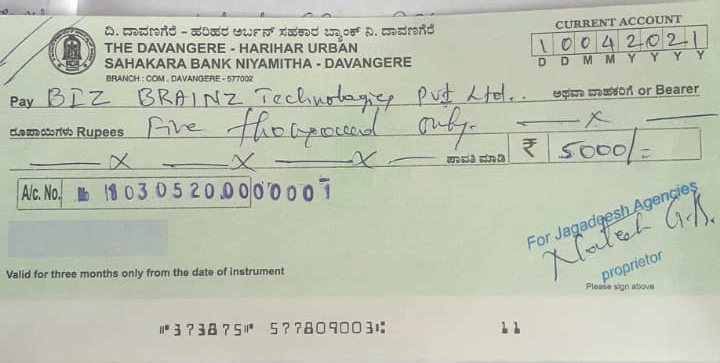 ದಿ. ದಾವಣಗೆರೆ - ಹರಿಹರ ಅರ್ಬನ್ ಸಹಕಾರ ಬ್ಯಾಂಕ್ ನಿ. ದಾವಣಗೆರೆ
THE DAVANGERE - HARIHAR URBAN
SAHAKARA BANK NIYAMITHA - DAVANGERE
BRANCH : COM . DAVANGERE - 577002
CURRENT ACCOUNT
10042021
D D M M Y Y Y Y
Pay BIZ BRAINZ Technologies Pvt Ltd.. ಅಥವಾ ವಾಹಕರಿಗೆ or Bearer
ರೂಪಾಯಿಗಳು Rupees Five thousand only. — x —
— x — x — x — ಪಾವತಿ ಮಾಡಿ ₹ 5000/=
A/c. No. 18030520000001
For Jagadeesh Agencies
proprietor
Please sign above
Valid for three months only from the date of instrument
⑈373875⑈ 577809003⑆ 11